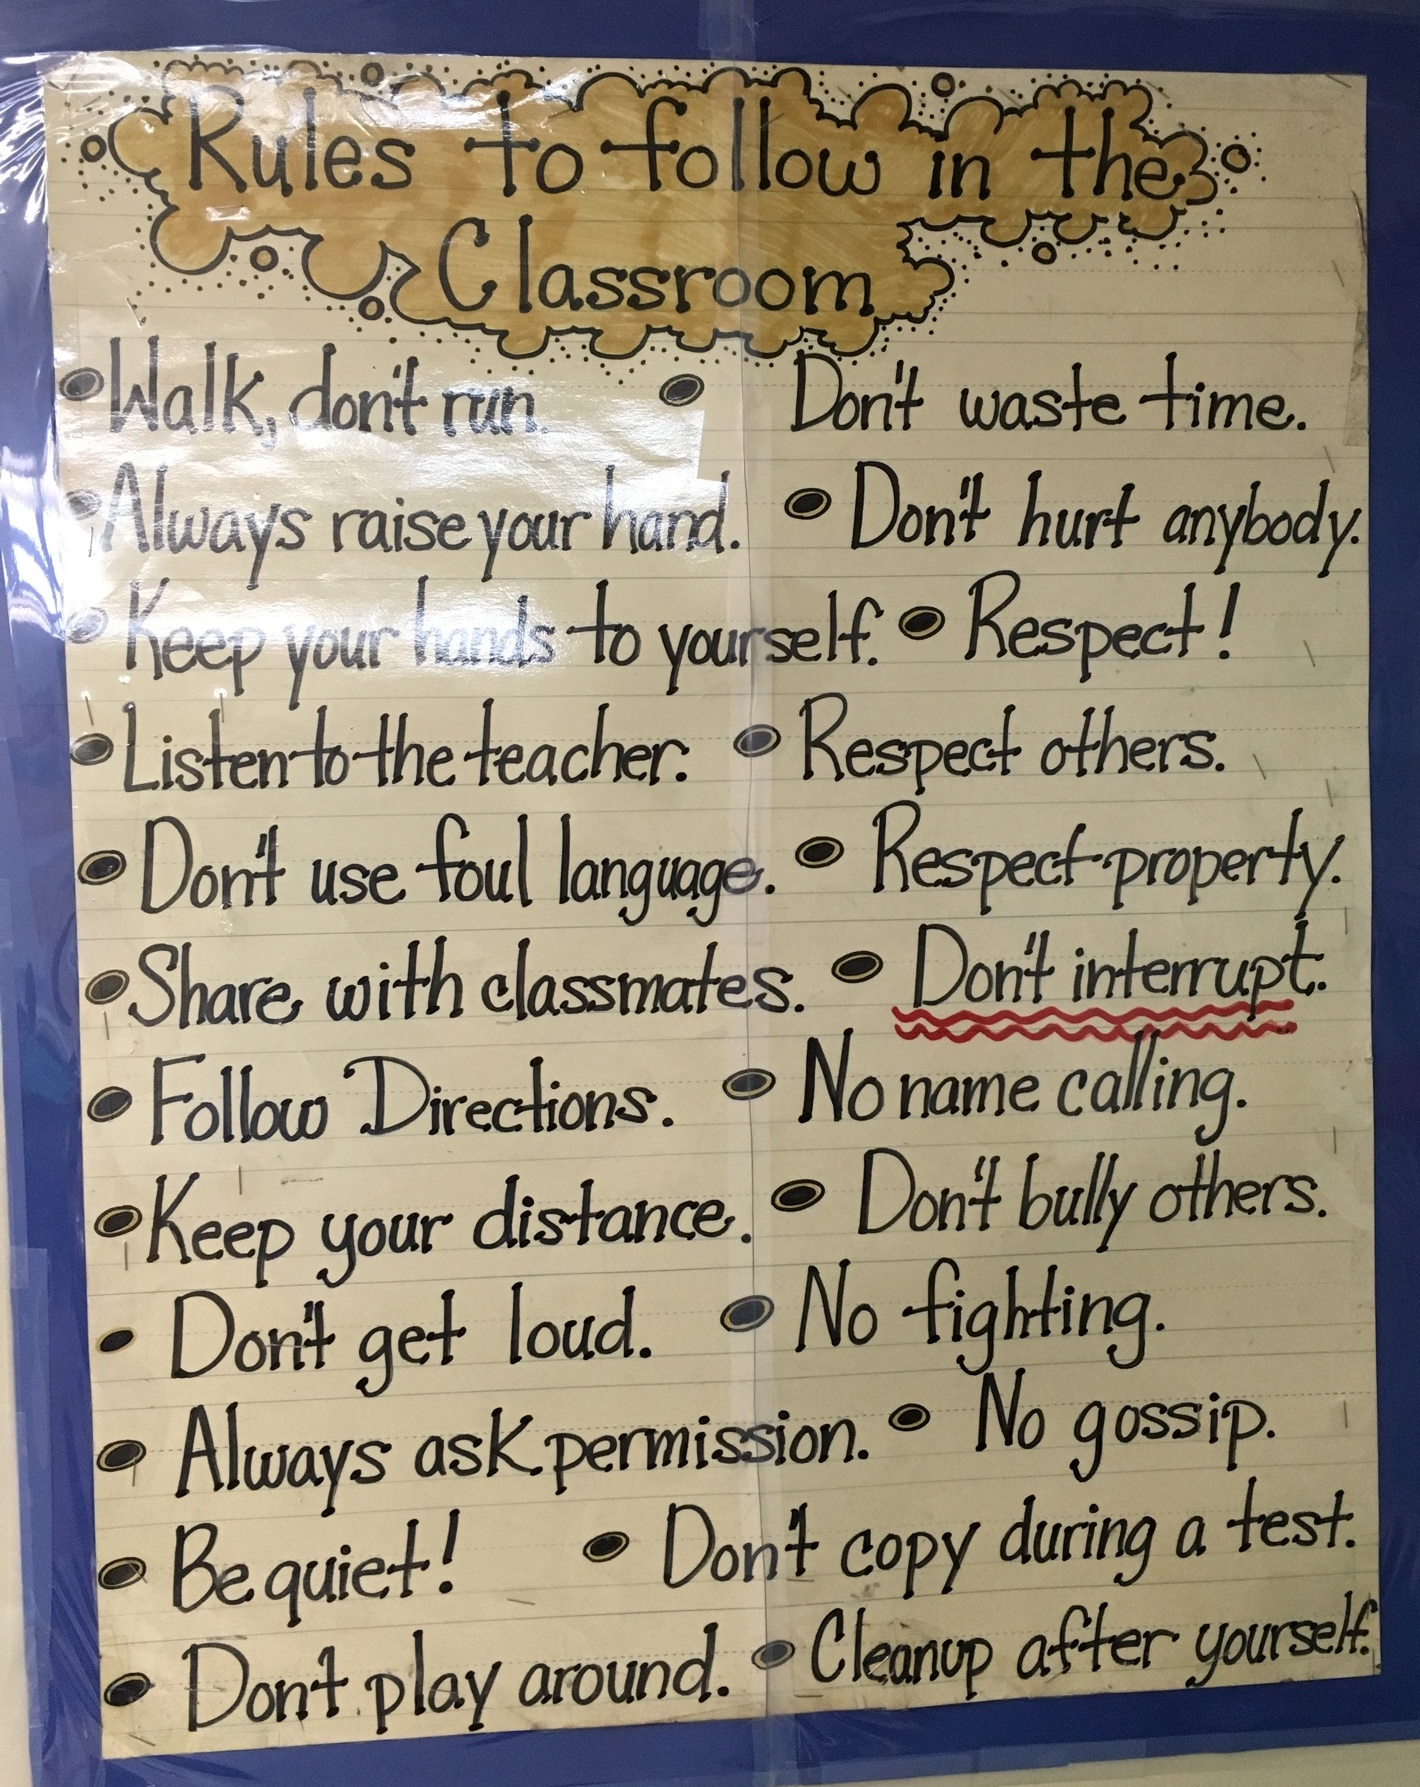 Rules to follow in the
Classroom
Walk, don't run.
Always raise your hand.
Keep your hands to yourself.
Listen to the teacher.
Don't use foul language.
Share with classmates.
Follow Directions.
Keep your distance.
Don't get loud.
Always ask permission.
Be quiet!
Don't play around.
Don't waste time.
Don't hurt anybody.
Respect!
Respect others.
Respect property.
Don't interrupt.
No name calling.
Don't bully others.
No fighting.
No gossip.
Don't copy during a test.
Cleanup after yourself.